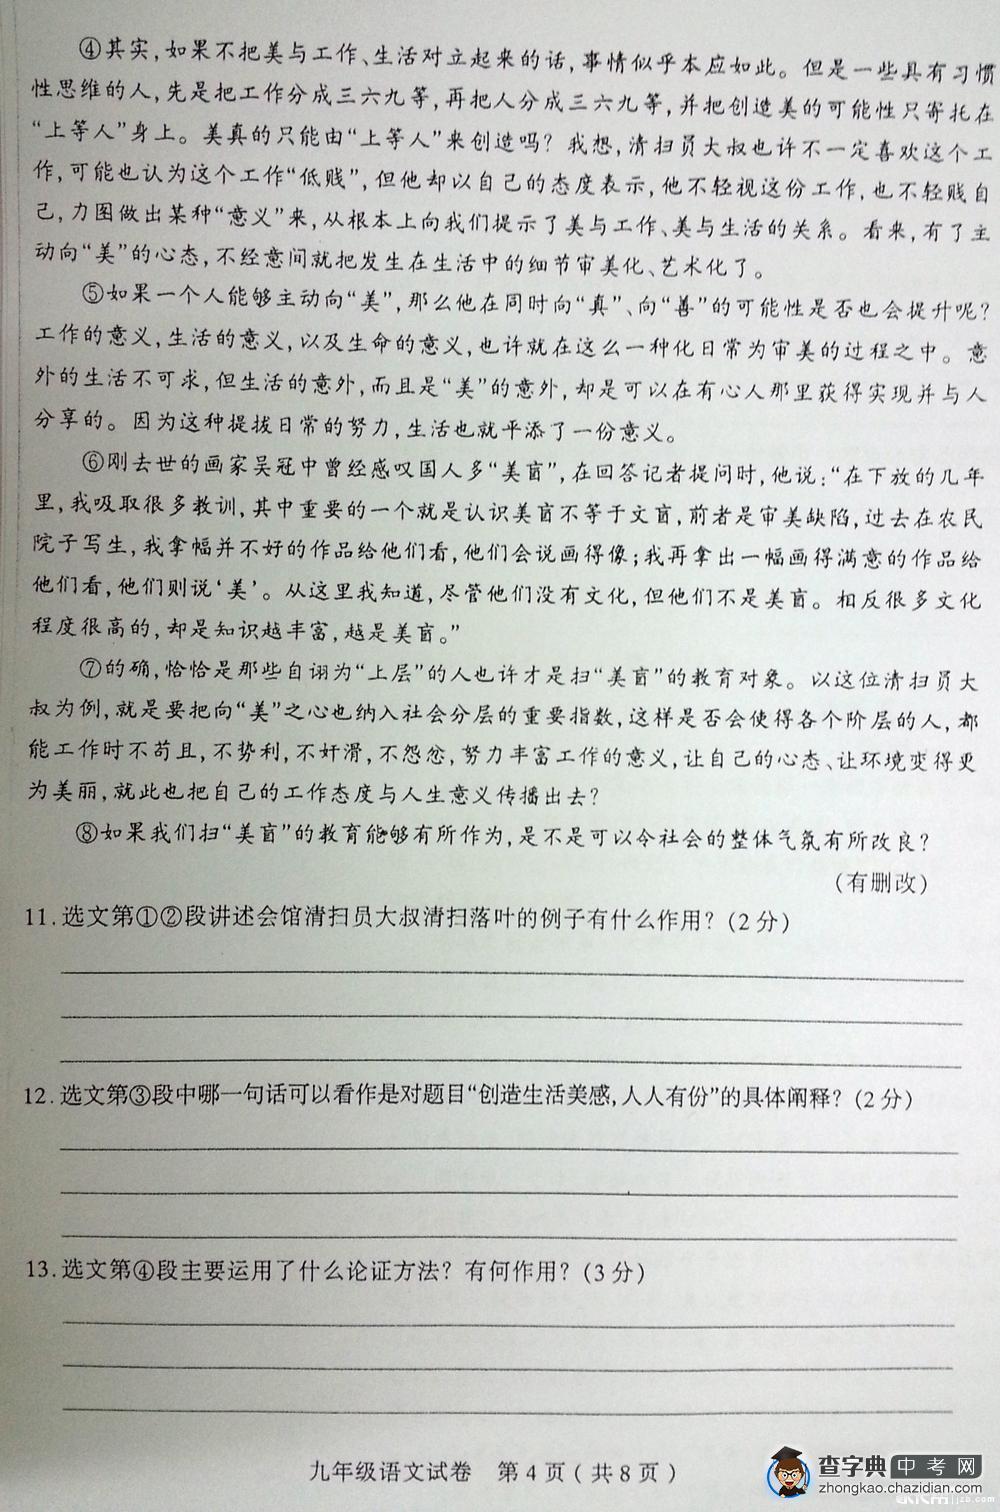 ④其实,如果不把美与工作、生活对立起来的话,事情似乎本应如此。但是一些具有习惯
性思维的人,先是把工作分成三六九等,再把人分成三六九等,并把创造美的可能性只寄托在
“上等人”身上。美真的只能由“上等人”来创造吗？我想,清扫员大叔也许不一定喜欢这个工
作,可能也认为这个工作“低贱”,但他却以自己的态度表示,他不轻视这份工作,也不轻贱自
己,力图做出某种“意义”来,从根本上向我们提示了美与工作、美与生活的关系。看来,有了主
动向“美”的心态,不经意间就把发生在生活中的细节审美化、艺术化了。
⑤如果一个人能够主动向“美”,那么他在同时向“真”、向“善”的可能性是否也会提升呢?
工作的意义,生活的意义,以及生命的意义,也许就在这么一种化日常为审美的过程之中。意
外的生活不可求,但生活的意外,而且是“美”的意外,却是可以在有心人那里获得实现并与人
分享的。因为这种提拔日常的努力,生活也就平添了一份意义。
⑥刚去世的画家吴冠中曾经感叹国人多“美盲”,在回答记者提问时,他说:“在下放的几年
里,我吸取很多教训,其中重要的一个就是认识美盲不等于文盲,前者是审美缺陷,过去在农民
院子写生,我拿幅并不好的作品给他们看,他们会说画得像;我再拿出一幅画得满意的作品给
他们看,他们则说‘美’。从这里我知道,尽管他们没有文化,但他们不是美盲。相反很多文化
程度很高的,却是知识越丰富,越是美盲。”
⑦的确,恰恰是那些自诩为“上层”的人也许才是扫“美盲”的教育对象。以这位清扫员大
叔为例,就是要把向“美”之心也纳入社会分层的重要指数,这样是否会使得各个阶层的人,都
能工作时不苟且,不势利,不奸滑,不怨忿,努力丰富工作的意义,让自己的心态、让环境变得更
为美丽,就此也把自己的工作态度与人生意义传播出去?
⑧如果我们扫“美盲”的教育能够有所作为,是不是可以令社会的整体气氛有所改良?
(有删改)
11.选文第①②段讲述会馆清扫员大叔清扫落叶的例子有什么作用?(2分)
12.选文第③段中哪一句话可以看作是对题目“创造生活美感,人人有份”的具体阐释?(2分)
13.选文第④段主要运用了什么论证方法?有何作用?(3分)
九年级语文试卷 第4页(共8页)
查字典 中考网
zhongkao.chazidian.com